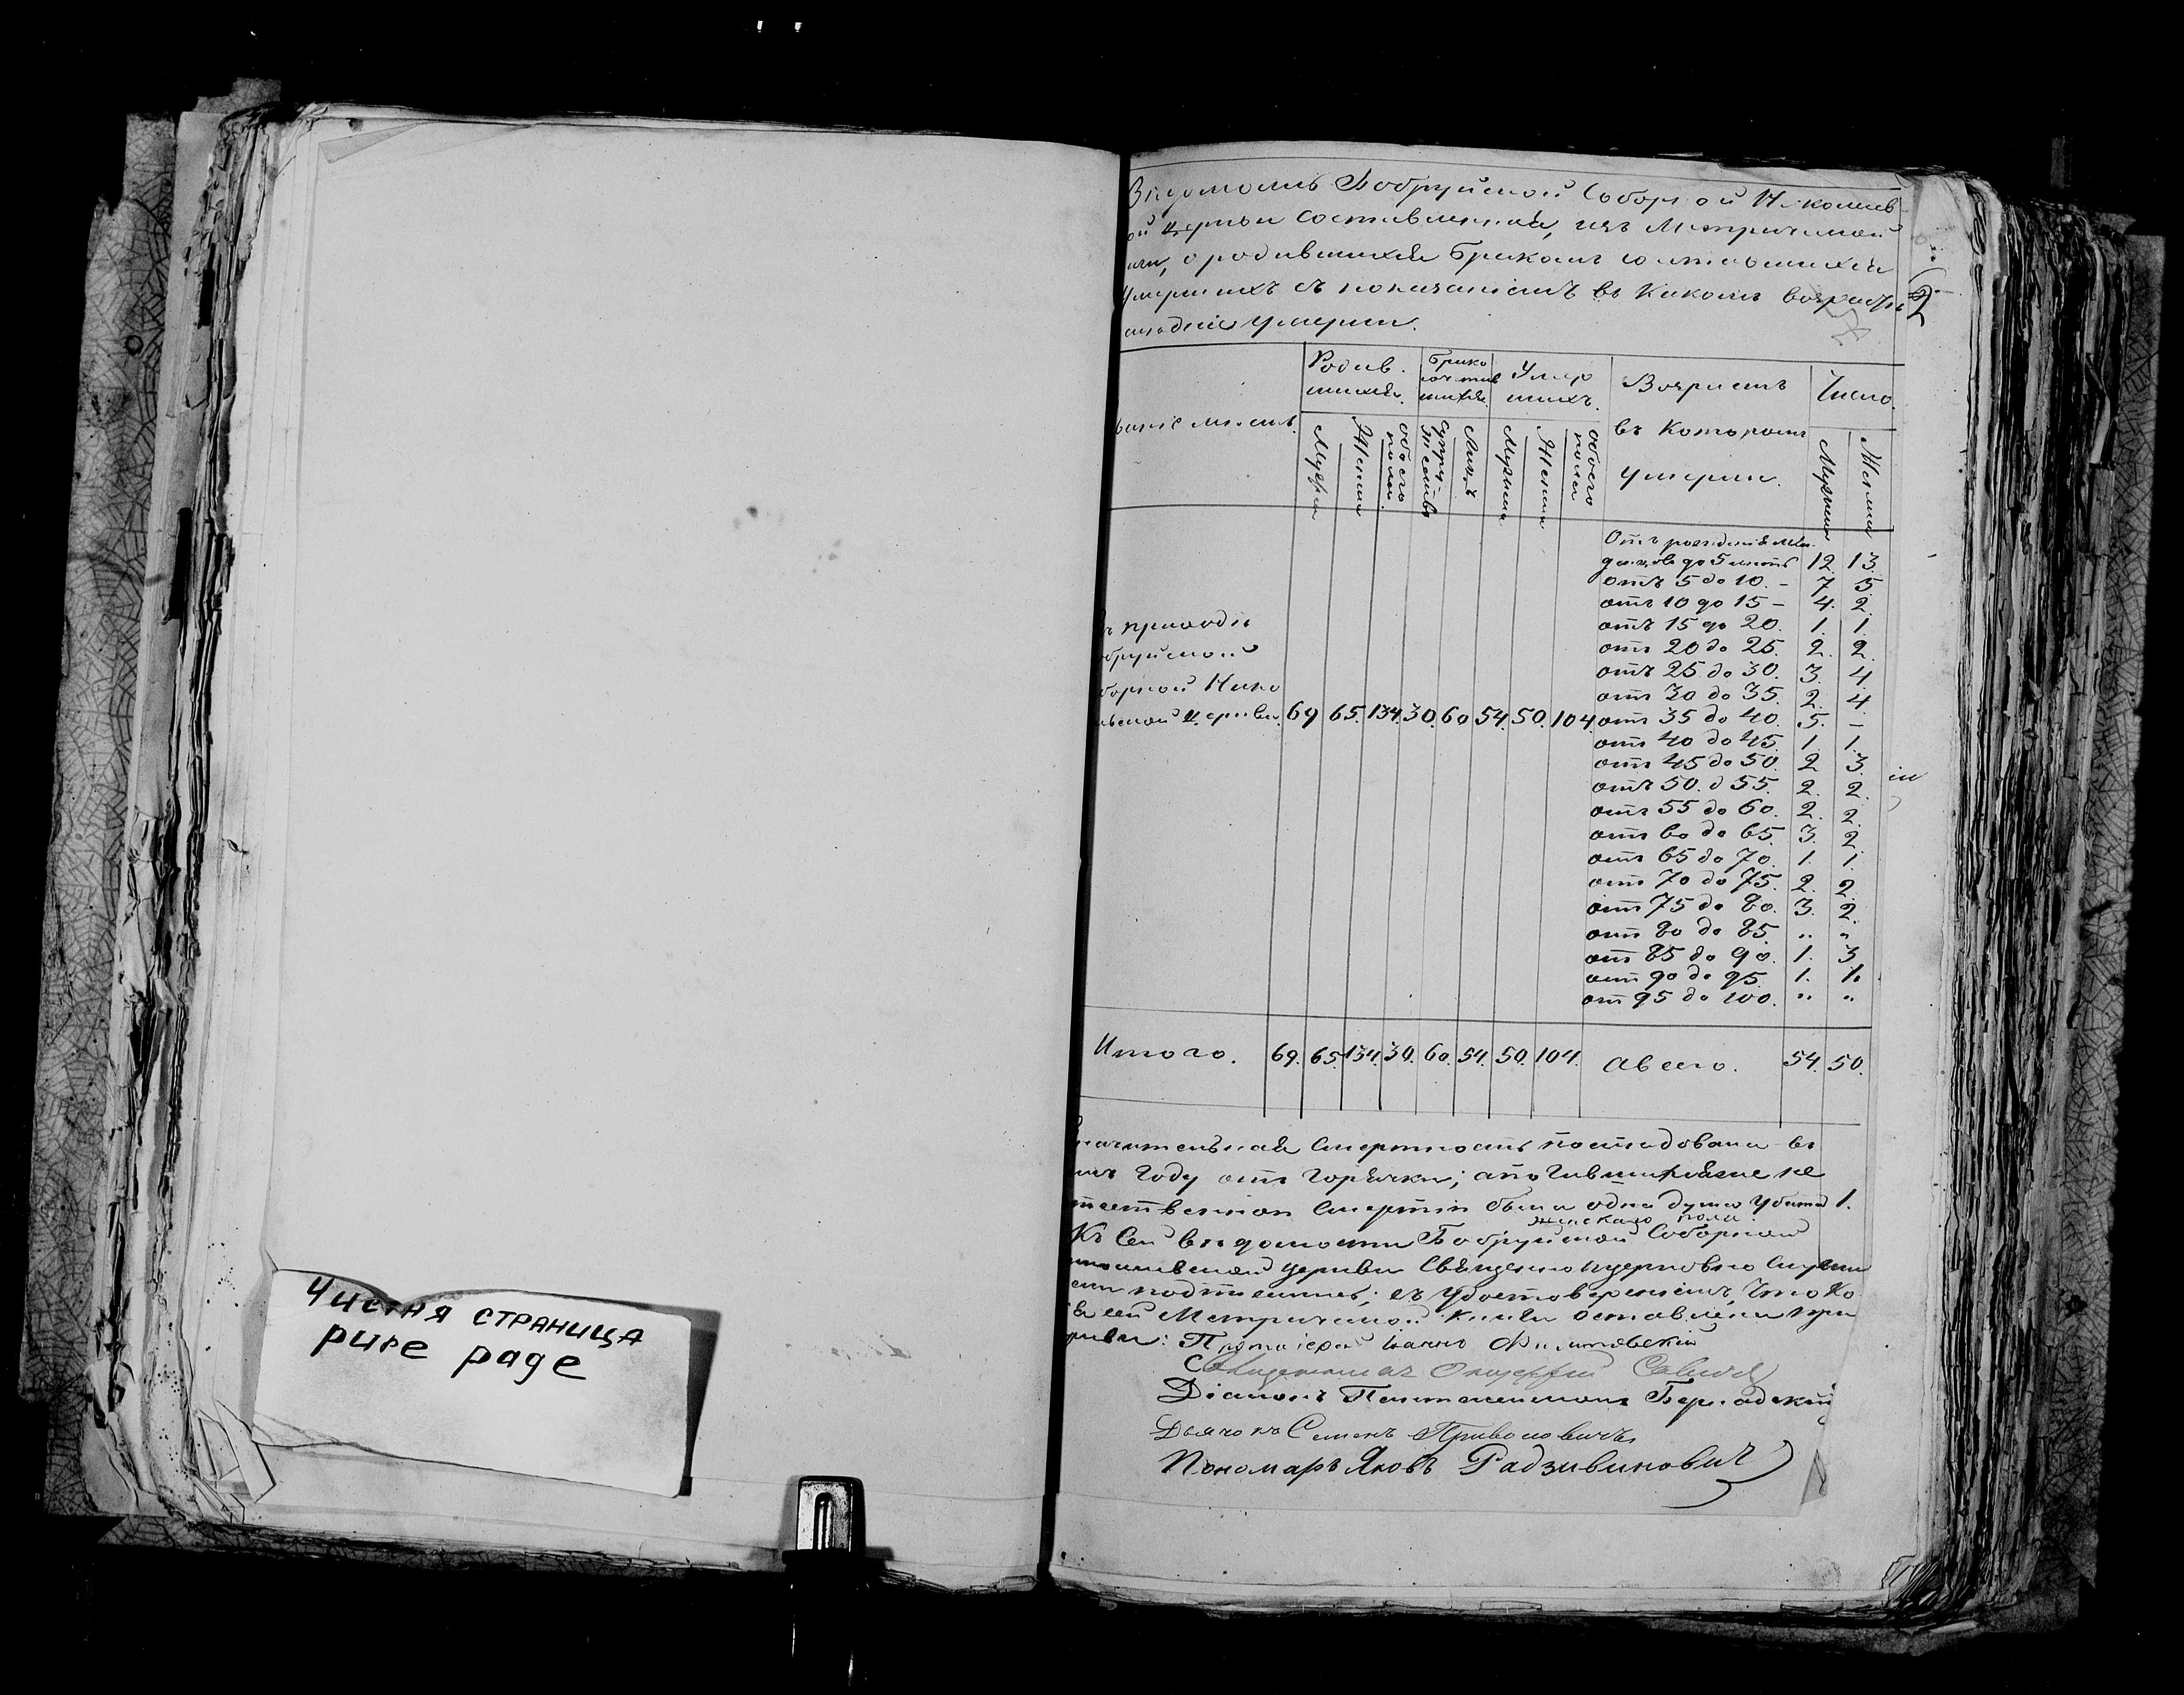 Чистая страница
pure page
Вѣдомость Бобруйской Соборной Николаев
ой Церкви составленная, изъ Метрической
иги, о родившихся Бракомъ сочетавшихся
Умершихъ съ показаніемъ въ какомъ возрастѣ
послѣдніе умерли.
2
Родив
шихся.
Брако
сочетав
шихся.
Умер
шихъ.
Возрастъ
въ которомъ
умерли.
Число.
ваніе мѣстъ.
Мужеска
Женска
обоего пола.
супружествъ
Лицъ
Мужеска
Женска
обоего пола
Мужеска
Женска
Отъ рожденія мла
денцовъ до 5 лѣтъ 12. 13.
отъ 5 до 10. – 7 5.
отъ 10 до 15 – 4. 2.
отъ 15 до 20. 1. 1.
отъ 20 до 25. 2. 2.
отъ 25 до 30. 3. 4
отъ 30 до 35. 2. 4
отъ 35 до 40. 5. –
отъ 40 до 45. 1. 1.
отъ 45 до 50. 2 3.
отъ 50. д 55. 2. 2.
отъ 55 до 60. 2. 2.
отъ 60 до 65. 3. 2.
отъ 65 до 70. 1. 1.
отъ 70 до 75. 2. 2.
отъ 75 до 80. 3. 2.
отъ 80 до 85. " "
отъ 85 до 90. 1. 3
отъ 90 до 95 1. 1.
отъ 95 до 100. " "
ъ приходѣ
обруйской
борной Нико
льской Церкви. 69 65. 134. 30. 60 54. 50. 104.
Итого. 69. 65. 134. 30. 60. 54. 50. 104. А всего. 54. 50.
начительная смертность послѣдовала въ
мъ году отъ горячки; а погившихся не
тественной смертію была одна душа убита 1.
женскаго пола.
Къ сей вѣдомости Бобруйской Соборной
Николаевской церкви Священно и церковно служи
ели подписались; съ удостовереніемъ, что ко
я сей Метрической книги оставлена при
ркви: Протоіерей Іоаннъ
Священникъ
Діаконъ Пантелеимонъ
Дьячокъ Семенъ Приволовичъ
Пономарь Яковъ Радзивиновичъ